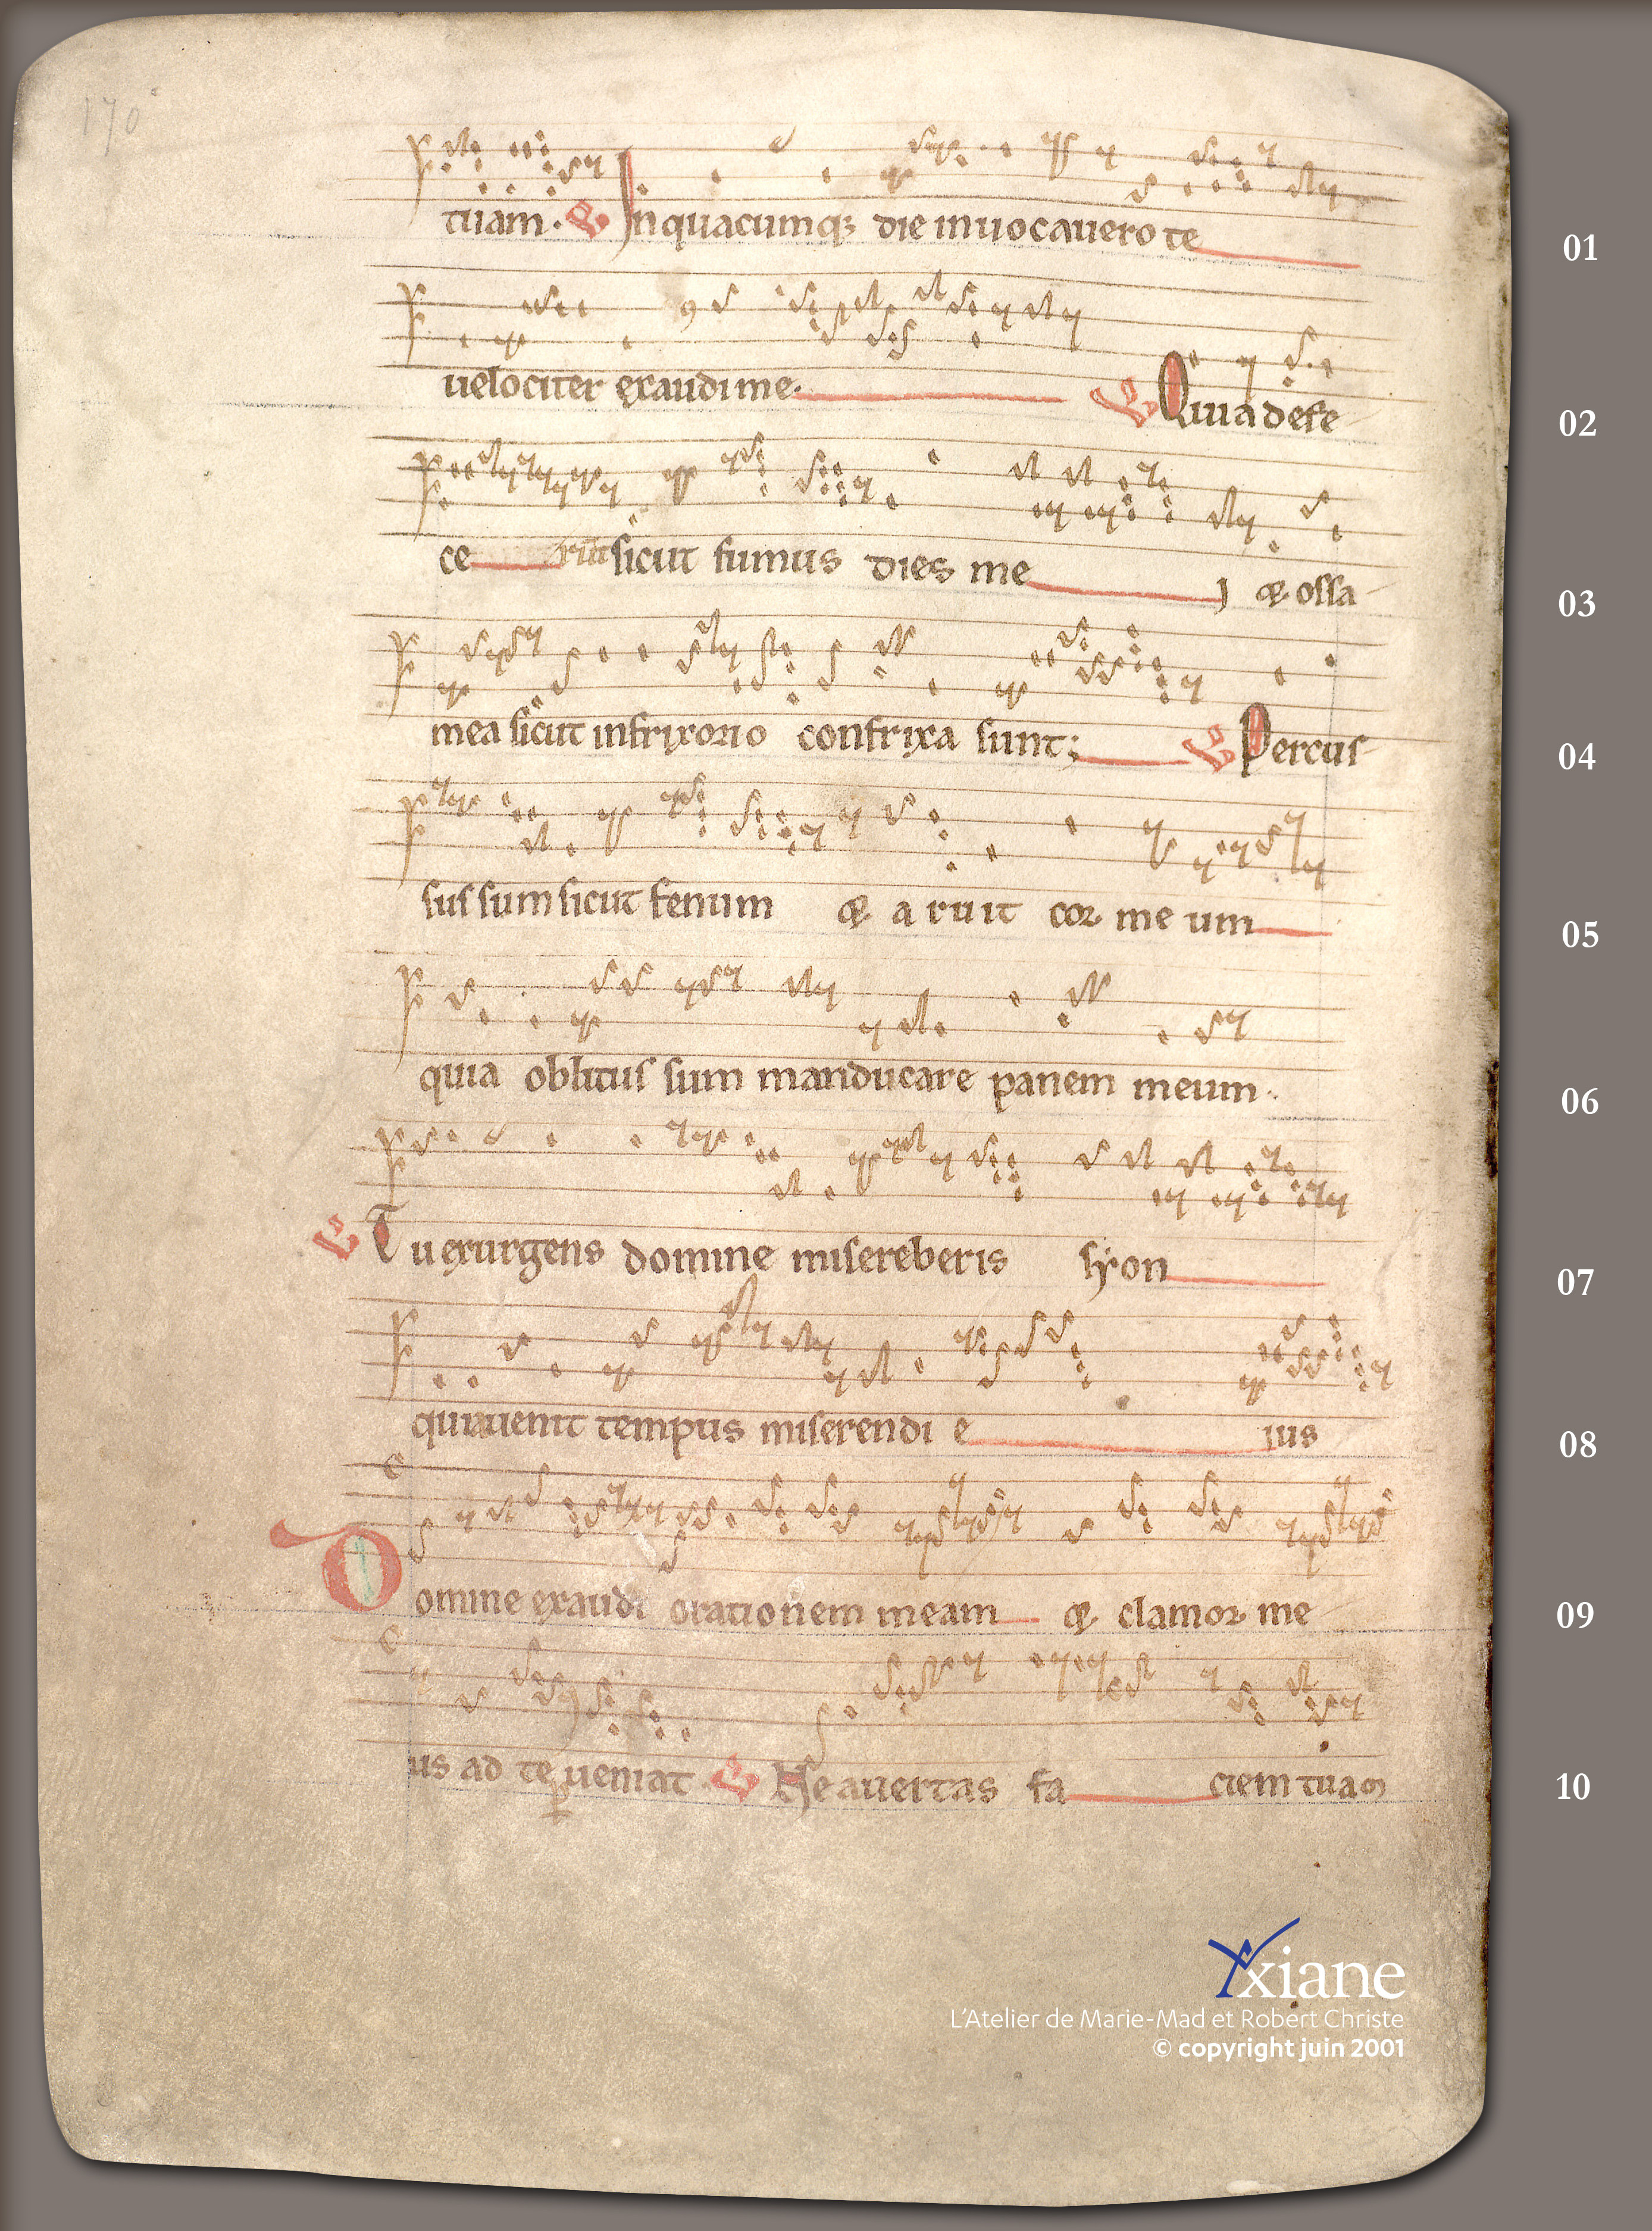 170
tuam. V In quacumq; die inuocauero te
01
uelociter exaudi me. V Quia defe
02
ce rūt sicut fumus dies me j & ossa
03
mea sicut in frixorio confrixa sunt; V Percus
04
sus sum sicut fenum & aruit cor meum
05
quia oblitus sum manducare panem meum.
06
V Tu exurgens domine misereberis syon
07
quia uenit tempus miserendi e ius
08
Domine exaudi orationem meam & clamor me
09
us ad te ꝑueniat V Ne auertas fa ciem tuam
10
Yxiane
L'Atelier de Marie-Mad et Robert Christe
© copyright juin 2001